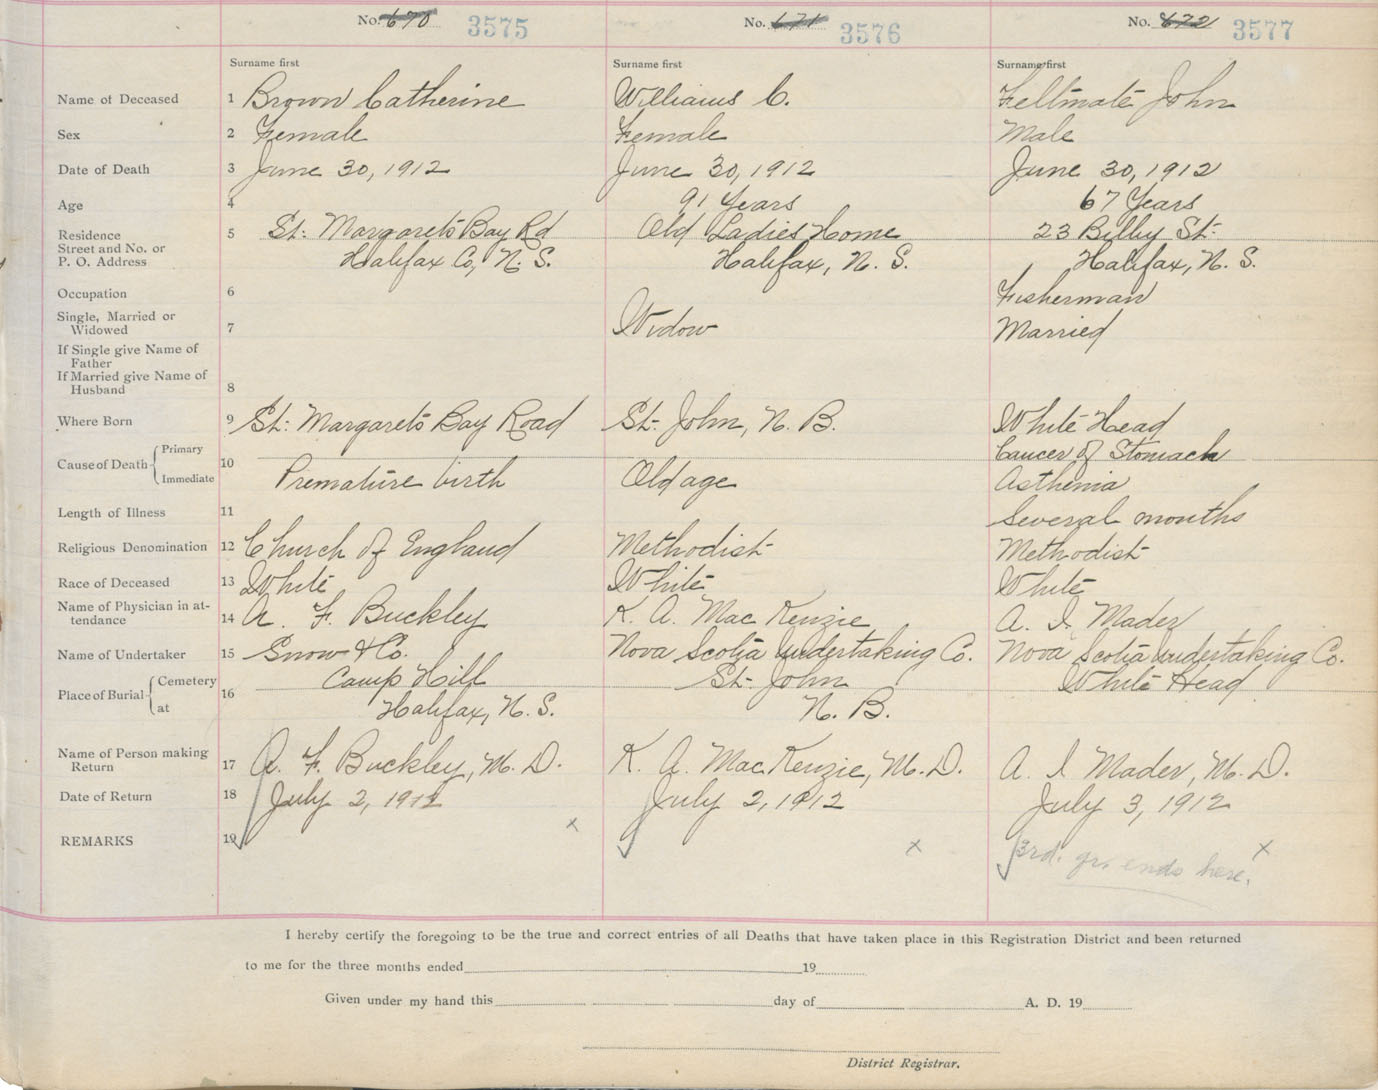 No. 670 3575 No. 671 3576 No. 672 3577
Surname first Surname first Surname first
Name of Deceased 1 Brown Catherine Williams C. Feltmate John
Sex 2 Female Female Male
Date of Death 3 June 30, 1912 June 30, 1912 June 30, 1912
Age 4 91 Years 67 Years
Residence 5 St. Margarets Bay Rd Old Ladies Home 23 Bilby St.
Street and No. or
P. O. Address Halifax Co, N. S. Halifax, N. S. Halifax, N. S.
Occupation 6 Fisherman
Single, Married or
Widowed 7 Widow Married
If Single give Name of
Father
If Married give Name of
Husband 8
Where Born 9 St. Margarets Bay Road St. John, N. B. White Head
Cause of Death Primary 10 Cancer of Stomach
Immediate Premature birth Old age Asthenia
Length of Illness 11 Several months
Religious Denomination 12 Church of England Methodist Methodist
Race of Deceased 13 White White White
Name of Physician in at-
tendance 14 A. F. Buckley K. A. MacKenzie A. I. Mader
Name of Undertaker 15 Snow & Co. Nova Scotia Undertaking Co. Nova Scotia Undertaking Co.
Place of Burial Cemetery 16 Camp Hill St. John White Head
at Halifax, N. S. N. B.
Name of Person making
Return 17 A. F. Buckley, M. D. K. A. MacKenzie, M. D. A. I Mader, M. D.
Date of Return 18 July 2, 1912 July 2, 1912 July 3, 1912
REMARKS 19 x x x
3rd. qr. ends here.
I hereby certify the foregoing to be the true and correct entries of all Deaths that have taken place in this Registration District and been returned
to me for the three months ended 19
Given under my hand this day of A. D. 19
District Registrar.